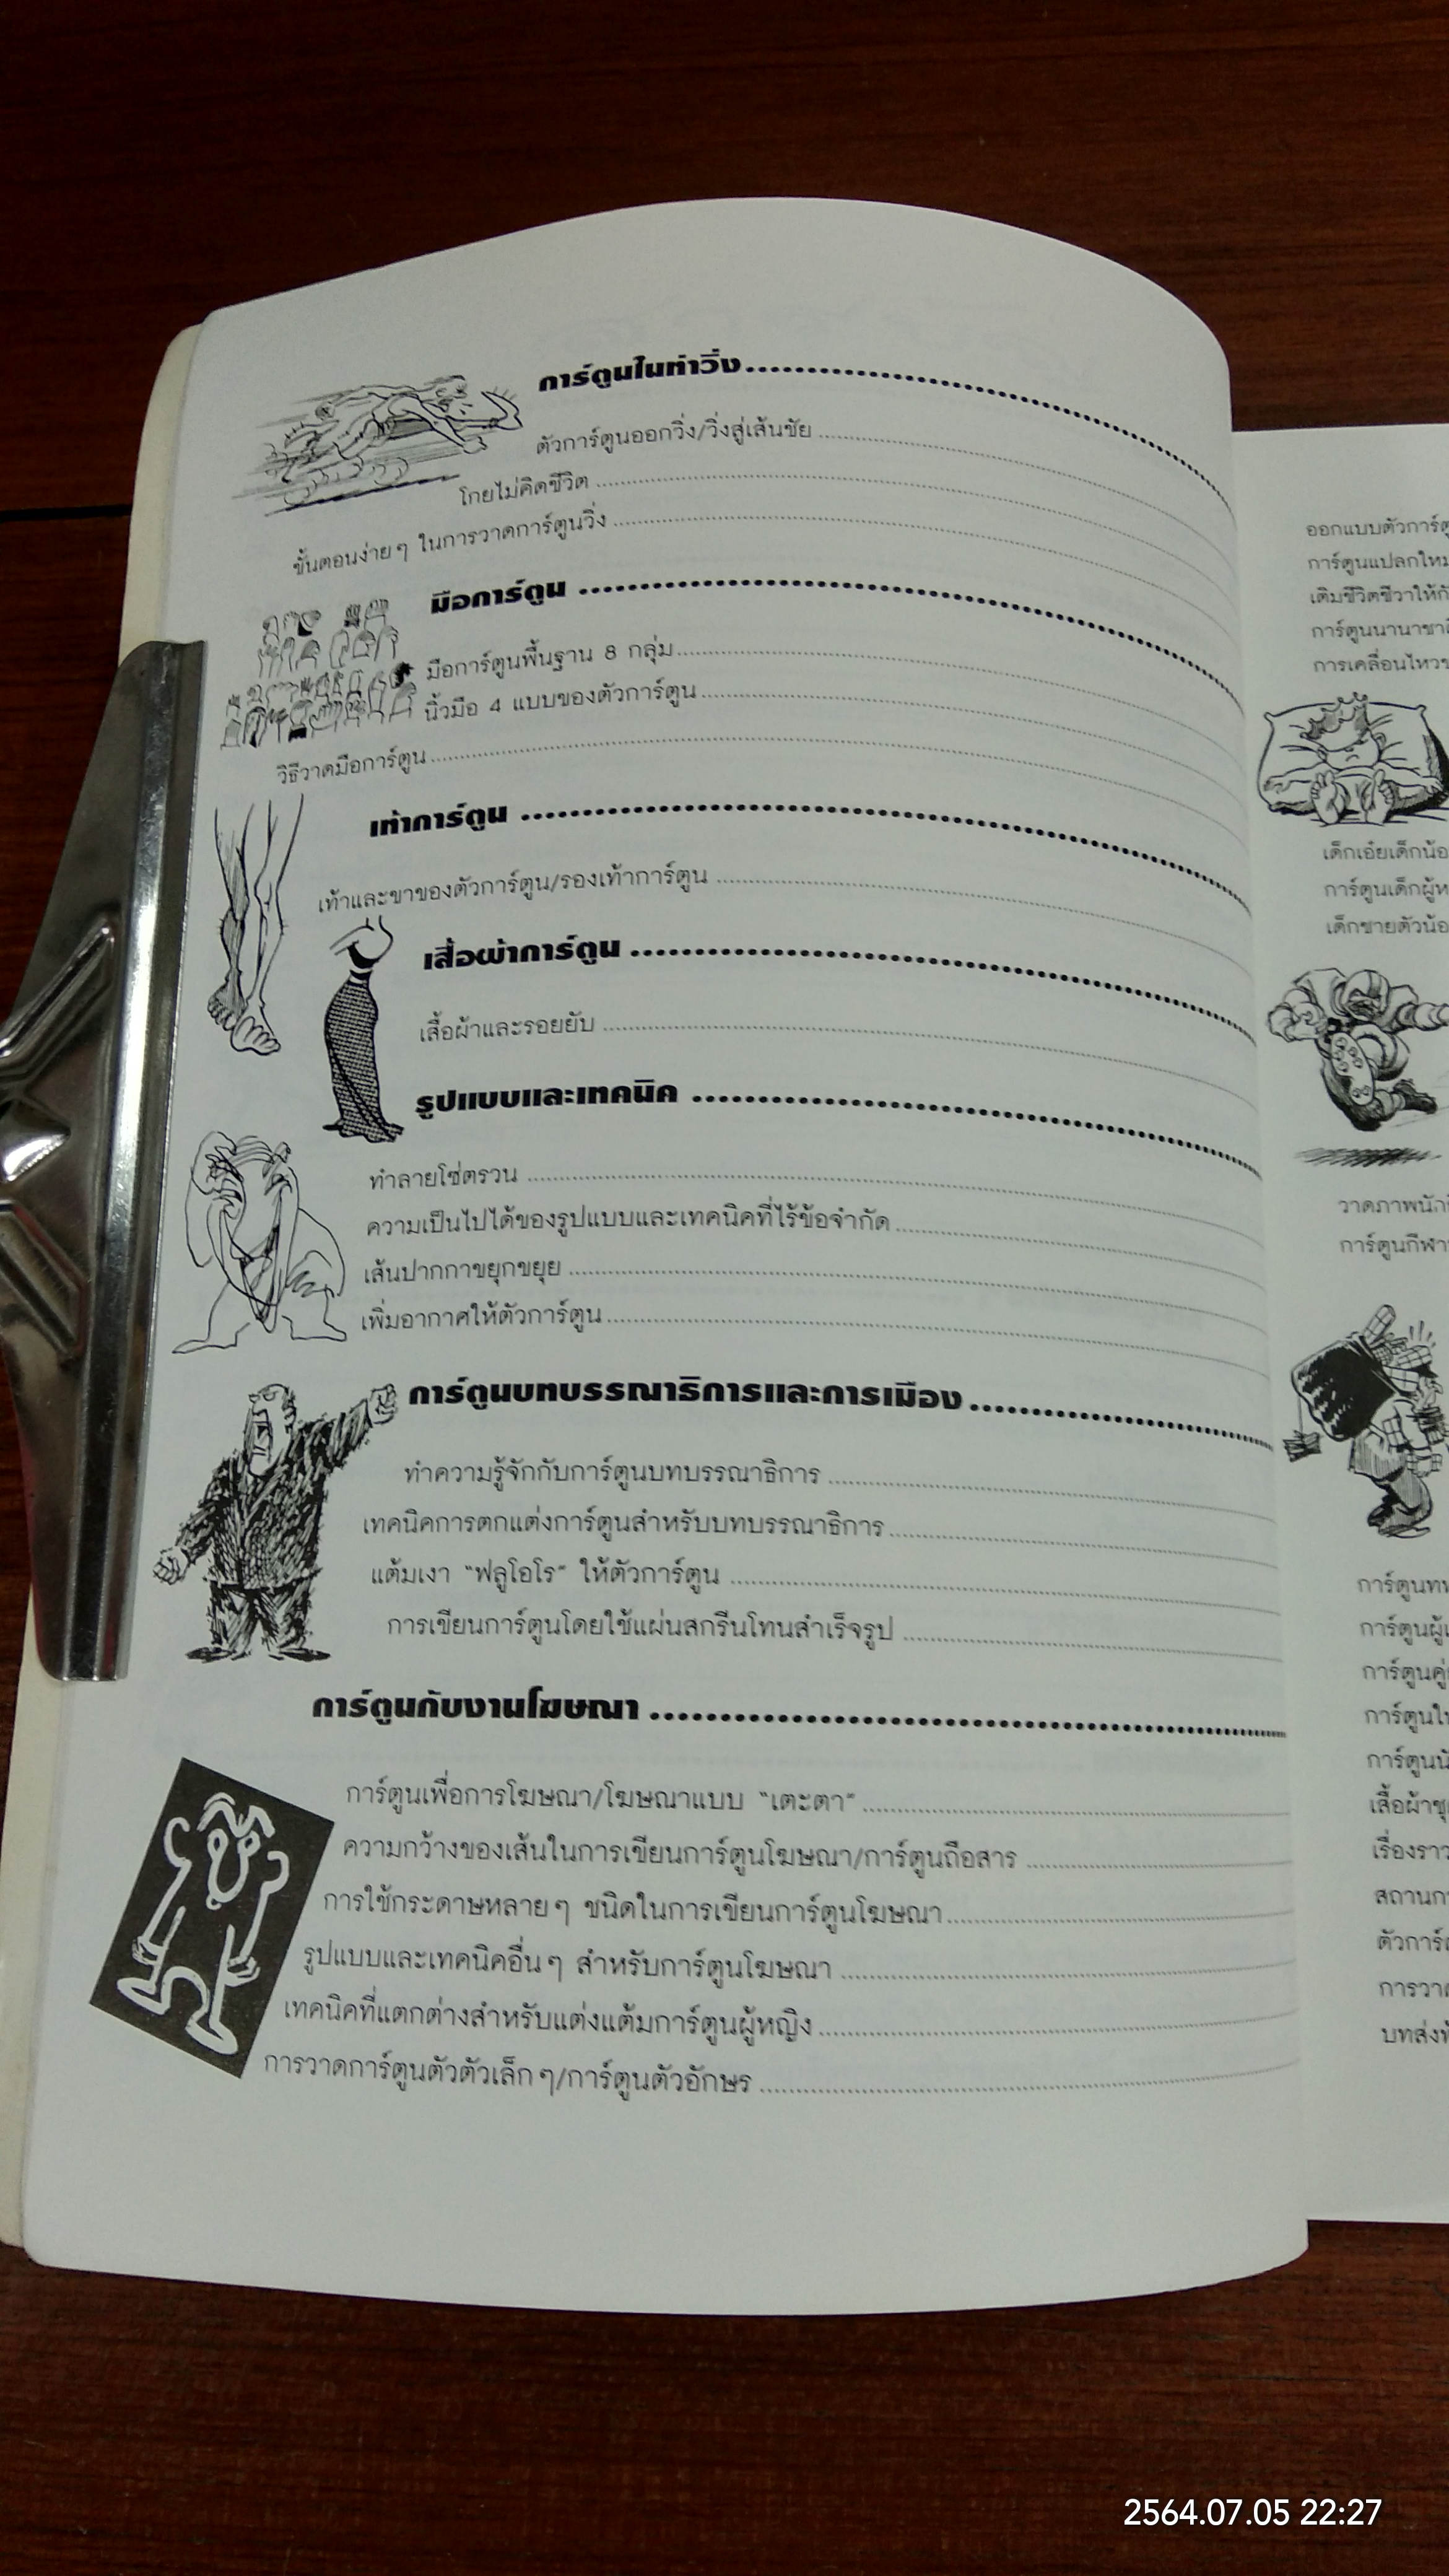 การ์ตูนในท่าวิ่ง
ตัวการ์ตูนออกวิ่ง/วิ่งสู่เส้นชัย
โกยไม่คิดชีวิต
ขั้นตอนง่ายๆ ในการวาดการ์ตูนวิ่ง
มือการ์ตูน
มือการ์ตูนพื้นฐาน 8 กลุ่ม
นิ้วมือ 4 แบบของตัวการ์ตูน
วิธีวาดมือการ์ตูน
เท้าการ์ตูน
เท้าและขาของตัวการ์ตูน/รองเท้าการ์ตูน
เสื้อผ้าการ์ตูน
เสื้อผ้าและรอยยับ
รูปแบบและเทคนิค
ทำลายโซ่ตรวน
ความเป็นไปได้ของรูปแบบและเทคนิคที่ไร้ข้อจำกัด
เส้นปากกาขยุกขยุย
เพิ่มอากาศให้ตัวการ์ตูน
การ์ตูนบทบรรณาธิการและการเมือง
ทำความรู้จักกับการ์ตูนบทบรรณาธิการ
เทคนิคการตกแต่งการ์ตูนสำหรับบทบรรณาธิการ
แต้มเงา "ฟลูโอโร" ให้ตัวการ์ตูน
การเขียนการ์ตูนโดยใช้แผ่นสกรีนโทนสำเร็จรูป
การ์ตูนกับงานโฆษณา
การ์ตูนเพื่อการโฆษณา/โฆษณาแบบ "เตะตา"
ความกว้างของเส้นในการเขียนการ์ตูนโฆษณา/การ์ตูนถือสาร
การใช้กระดาษหลายๆ ชนิดในการเขียนการ์ตูนโฆษณา
รูปแบบและเทคนิคอื่นๆ สำหรับการ์ตูนโฆษณา
เทคนิคที่แตกต่างสำหรับแต่งแต้มการ์ตูนผู้หญิง
การวาดการ์ตูนตัวตัวเล็กๆ/การ์ตูนตัวอักษร
ออกแบบตัวการ์ตู
การ์ตูนแปลกใหม
เติมชีวิตชีวาให้กั
การ์ตูนนานาชา
การเคลื่อนไหว
เด็กเอ๋ยเด็กน้อ
การ์ตูนเด็กผู้ห
เด็กชายตัวน้อ
วาดภาพนัก
การ์ตูนกีฬา
การ์ตูนท
การ์ตูนผู้
การ์ตูนคู่
การ์ตูนใ
การ์ตูนนั
เสื้อผ้าชุ
เรื่องราว
สถานก
ตัวการ์
การวา
บทส่งท้
2564.07.05 22:27